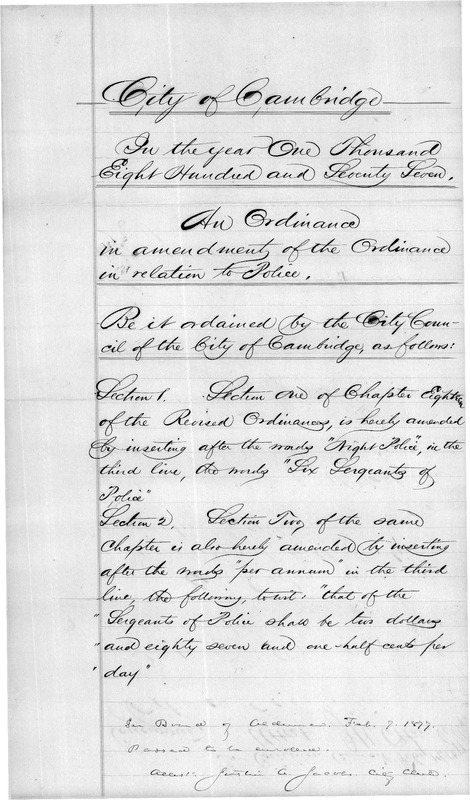 City of Cambridge
In the year One Thousand
Eight Hundred and Seventy Seven.
An Ordinance
in amendment of the Ordinance
in relation to Police.
Be it ordained by the City Coun-
cil of the City of Cambridge, as follows:
Section 1. Section one of Chapter Eighteen
of the Revised Ordinances, is hereby amended
by inserting after the words "Night Police", in the
third line, the words "Six Sergeants of
Police"
Section 2. Section Two, of the same
Chapter is also hereby amended by inserting
after the words "per annum" in the third
line, the following, to wit: "that of the
"Sergeants of Police shall be two dollars
"and eighty seven and one-half cents per
"day"
In Board of Aldermen. Feb. 7. 1877.
Passed to be enrolled.
Attest: Justin A. Jacobs. City Clerk.